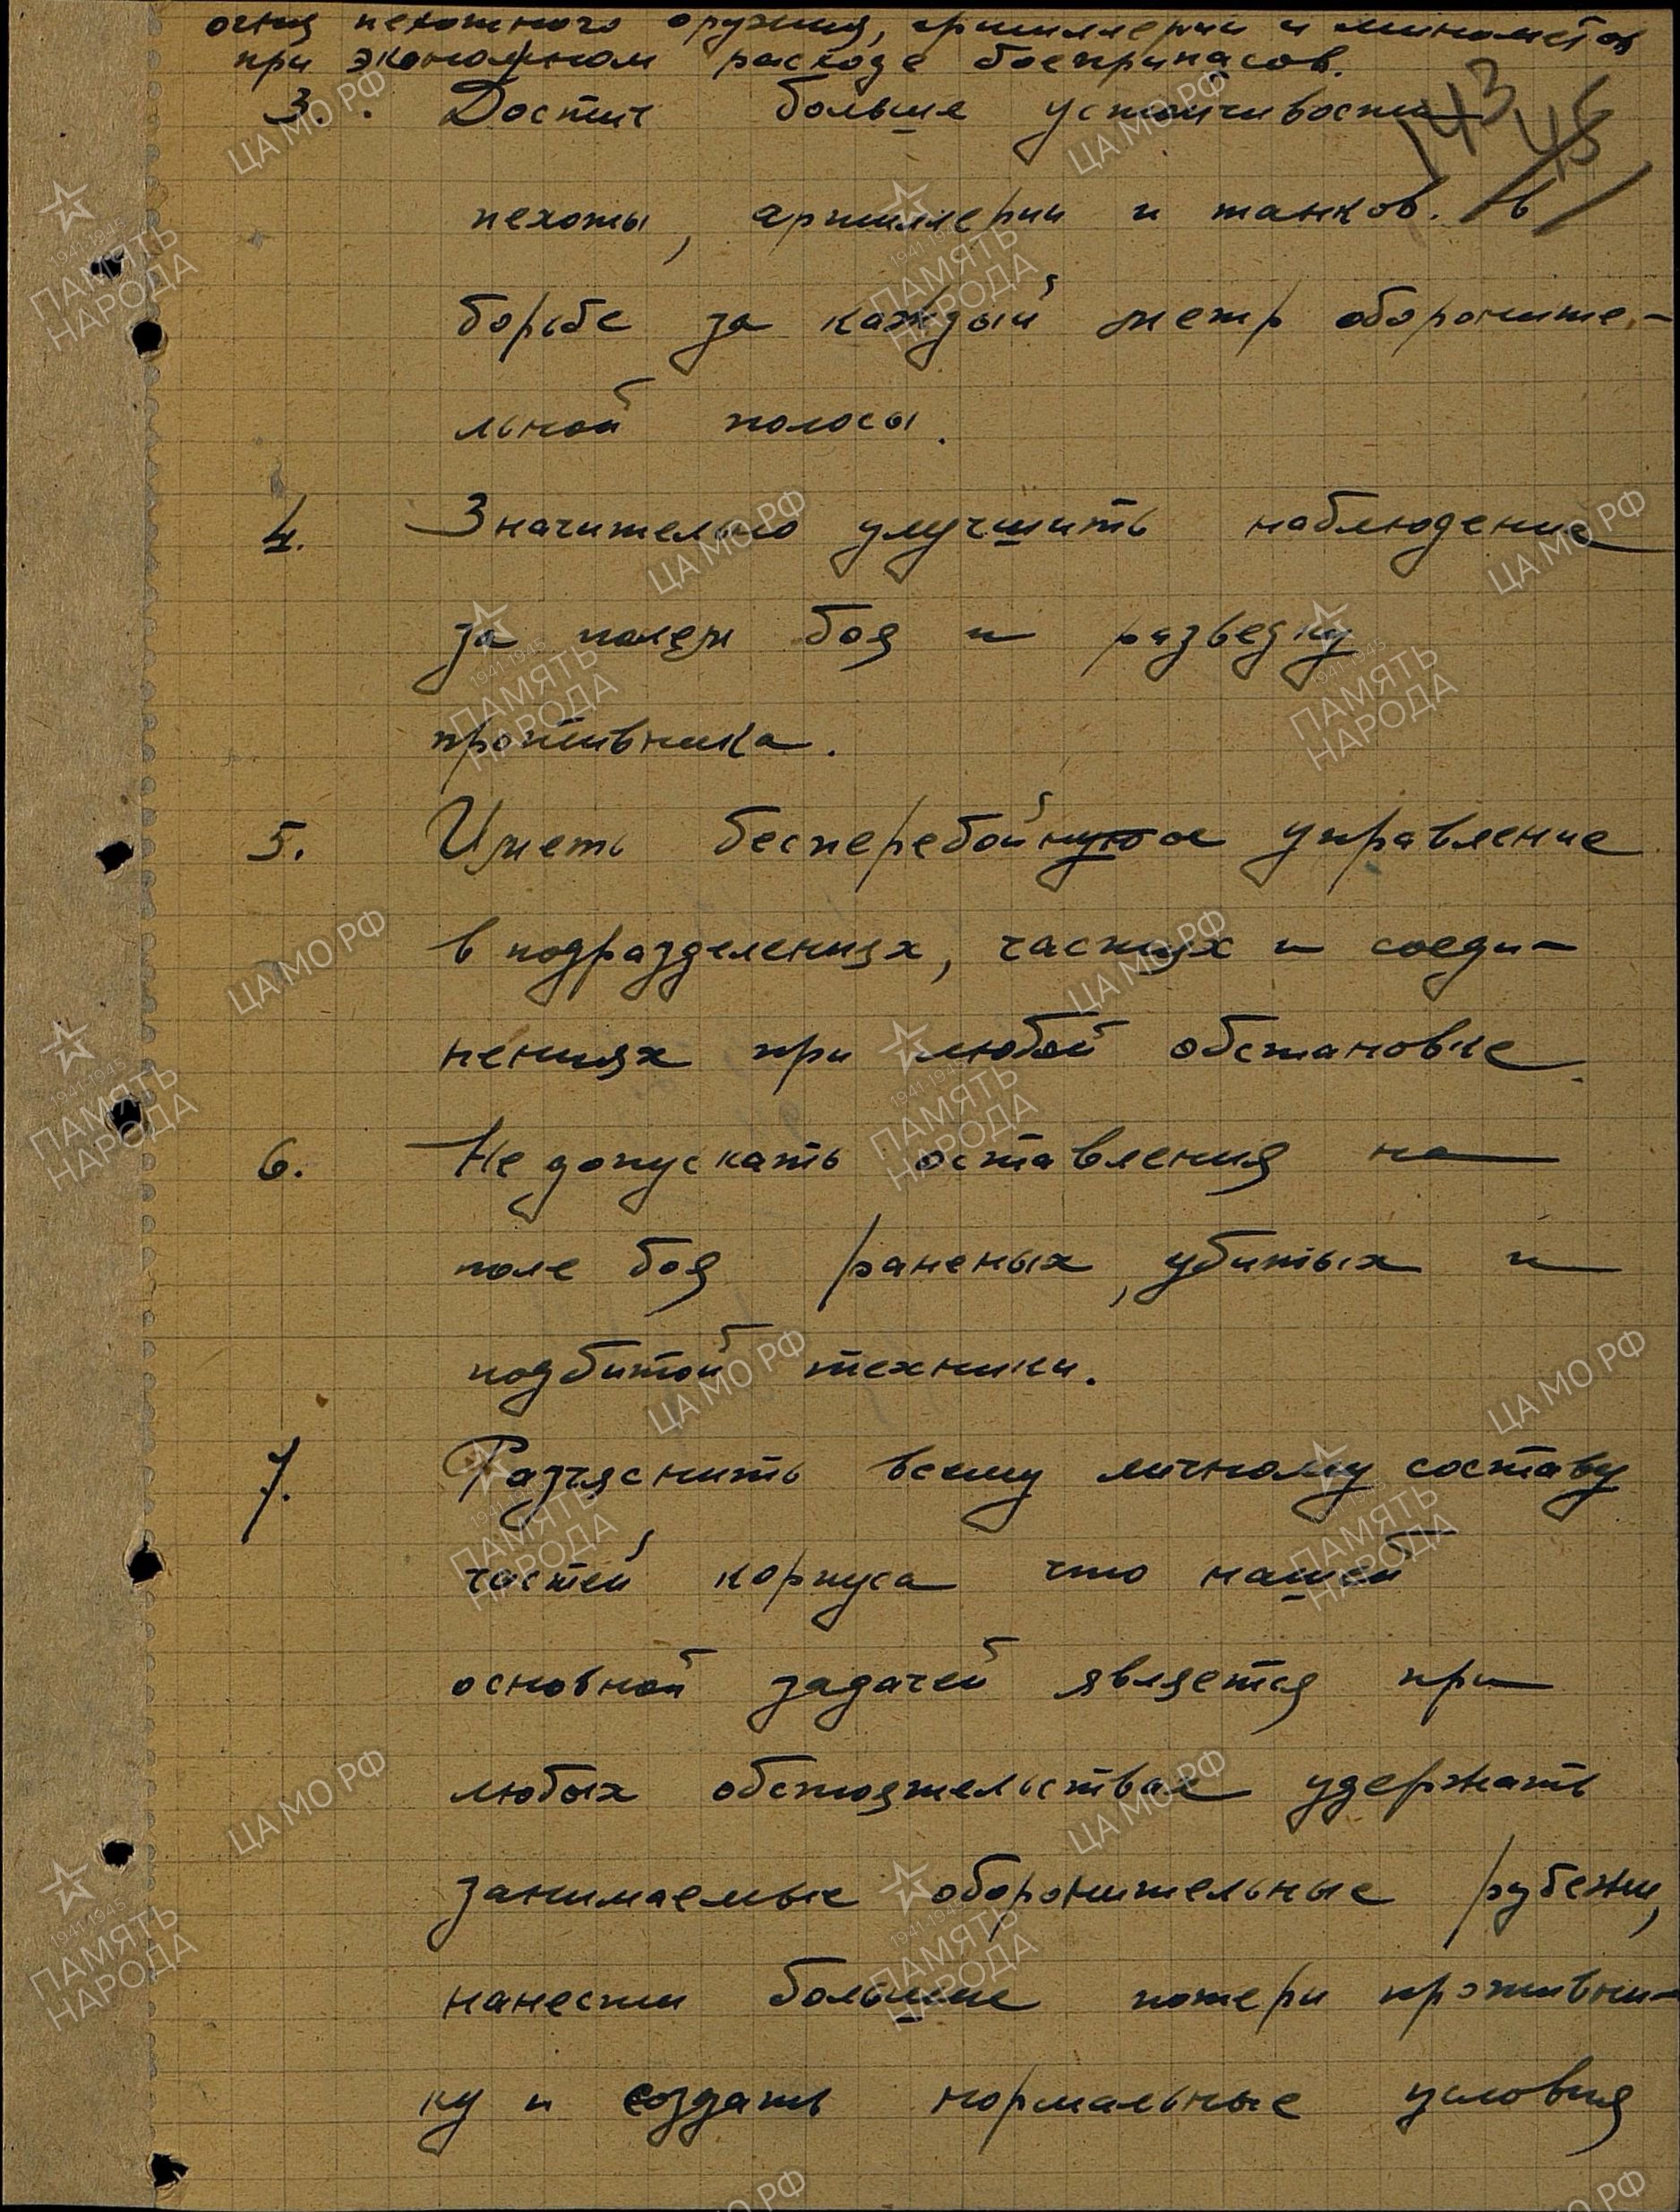 огня пехотного оружия, артиллерии и миномётов
при экономном расходе боеприпасов.
3. Достич больше устойчивости
143 45
пехоты, артиллерии и танков. в
борьбе за каждый метр оборините-
льной полосы.
4. Значительно улучшить наблюдение
за полем боя и разведку
противника.
5. Иметь бесперебойное управление
в подразделениях, частях и соеди-
нениях при любой обстановке.
6. Не допускать оставления на
поле боя раненых, убитых и
подбитой техники.
7. Разъяснить всему личному составу
частей корпуса что нашей
основной задачей является при
любых обстоятельствах удержать
занимаемые оборонительные рубежи,
нанести большие потери противни-
ку и создать нормальные условия